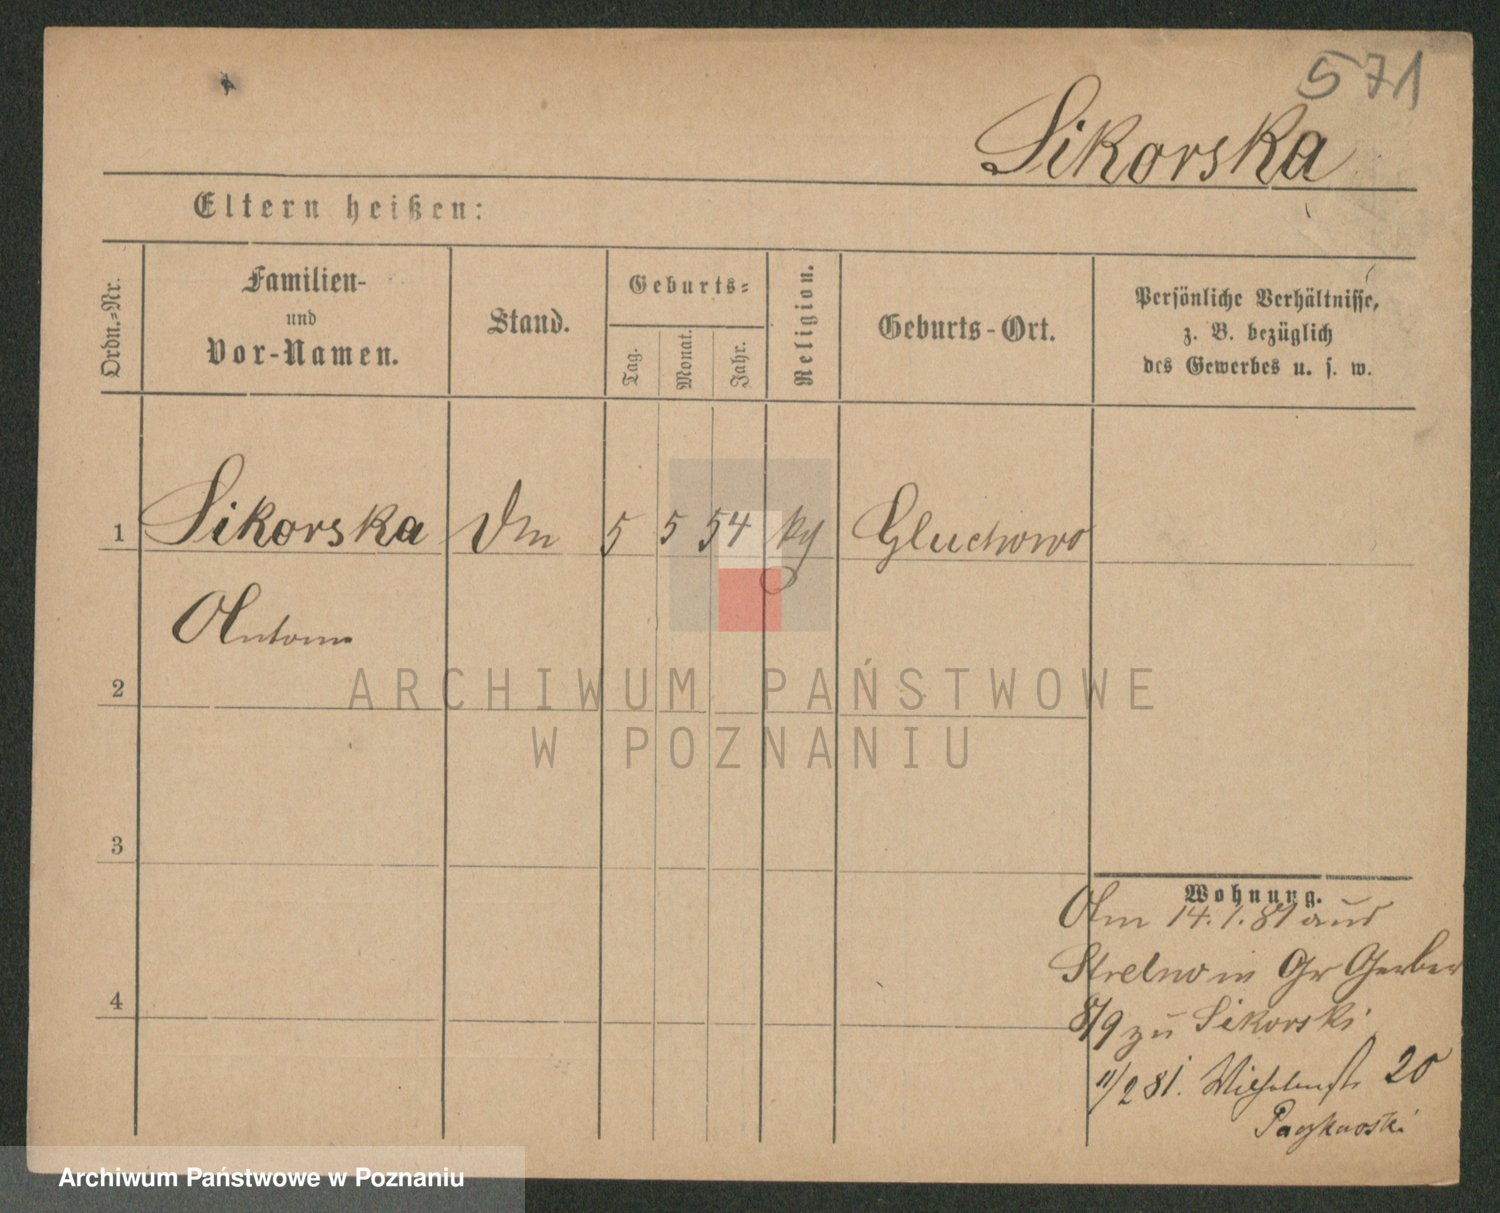 571
Sikorska
Eltern heißen:
Ordn.=Nr.
Familien-
und
Vor-Namen.
Stand.
Geburts=
Tag.
Monat.
Jahr.
Religion.
Geburts-Ort.
Persönliche Verhältnisse,
z. B. bezüglich
des Gewerbes u. s. w.
1 Sikorska 5 5 54 Gluchowo
2
3
4
ARCHIWUM PAŃSTWOWE
W POZNANIU
Wohnung.
Am 14.1.81 aus
Strelno in Gr Gerber
8/9 zu Sikorski
11/2 81. 20
Archiwum Państwowe w Poznaniu